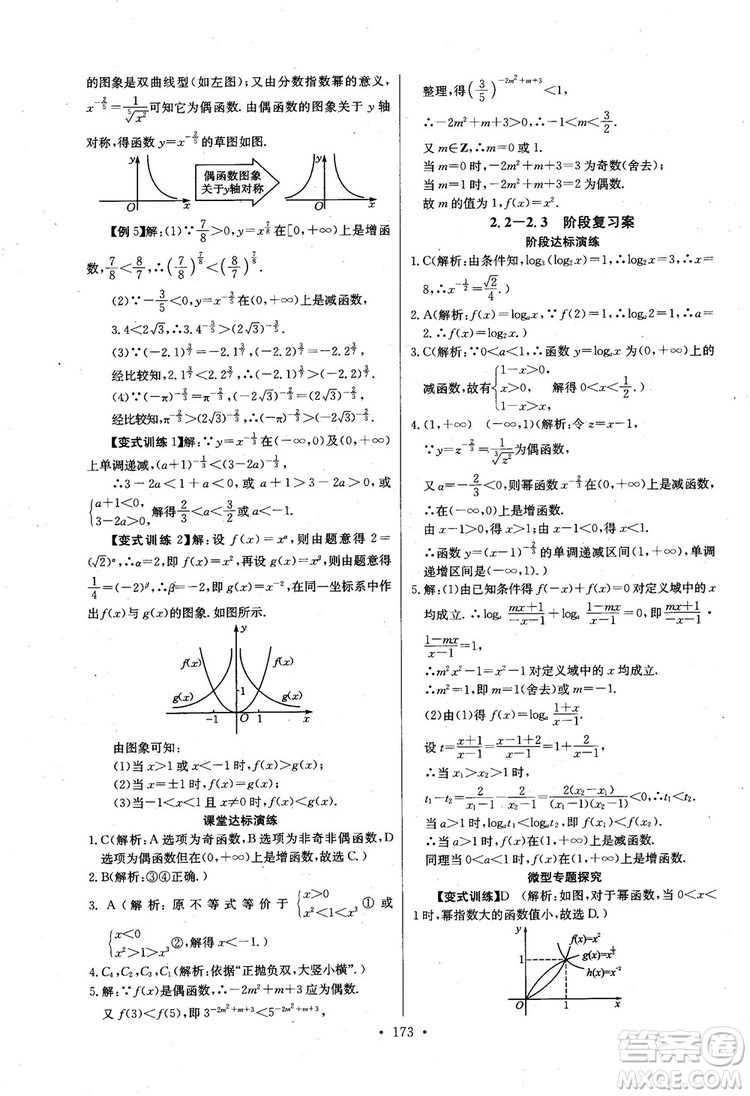 的图象是双曲线型(如左图);又由分数指数幂的意义,
x^{-2/5}=1/⁵√x²可知它为偶函数.由偶函数的图象关于 y 轴
对称,得函数 y=x^{-2/5}的草图如图.
y
O x
偶函数图象
关于y轴对称
y
O x
【例 5】解:(1)∵7/8>0,∴x^{7/8}在[0,+∞)上是增函
(2)∵-3/5<0,∴x^{-3/5}在(0,+∞)上是减函数,
经比较知,(-2.1)^{-3/7}>(-2.2)^{-3/7}.
上单调递减,(a+1)^{-1/3}<(3-2a)^{-1/3}
∴3-2a<1+a<0 或 a+1>3-2a>0 或
{a+1<0 3-2a>0,解得2/3<a<3/2或 a<-1.
【变式训练 2】解:设 f(x)=x^α,则由题意得 2=
(√2)^α,∴α=2,即 f(x)=x²,再设 g(x)=x^β,则由题意得
1/4=(-2)^β,∴β=-2,即 g(x)=x^{-2},在同一坐标系中作
出f(x)与 g(x)的图象.如图所示.
y
f(x) f(x)
g(x) 1 g(x)
-1 O 1 x
由图象可知:
(1)当 x>1 或 x<-1 时,f(x)>g(x);
(2)当 x=±1 时,f(x)=g(x);
(3)当-1<x<1 且 x≠0 时,f(x)<g(x).
课堂达标演练
1. C(解析:A 选项为奇函数,B 选项为非奇非偶函数,D
选项为偶函数但在(0,+∞)上是增函数,故选 C.)
2. B(解析:③④正确.)
3. A(解析:原不等式等价于{x>0 x²<1<x³ ①或
{x<0 x²>1>x³ ②,解得
4. C₄,C₂,C₃,C₁(解析:依据“正抛负双,大竖小横”.)
5. 解:∵f(x)是偶函数,∴-2m²+m+3 应为偶数.
又 f(3)<f(5),即 3^{-2m²+m+3}<5^{-2m²+m+3},
整理,得(3/5)^{-2m²+m+3}<1,
∴-2m²+m+3>0,∴-1<m<3/2.
又 m∈Z,∴m=0 或 1.
当 m=0 时,-2m²+m+3=3 为奇数(舍去);
当 m=1 时,-2m²+m+3=2 为偶数.
故 m 的值为 1,f(x)=x².
2.2—2.3 阶段复习案
阶段达标演练
1. C(解析:由条件知,log₃(log₂x)=1,∴log₂x=3,∴x=
8,∴x^{-1/2}=√2/4.)
2. A(解析:f(x)=logₐx,f(2)=1,∴logₐ2=1,∴a=
2.∴f(x)=log₂x.)
3. C(解析:∵0<a<1,∴函数 y=logₐx 在(0,+∞)上的
减函数,故有{1-x>0 x>0 1-x>x 解得 0<x<1/2.)
4. (1,+∞) (-∞,1)(解析:令 z=x-1,
∵y=z^{-2/3}=1/³√z²为偶函数.
又∵α=-2/3<0,∴由幂函数的性质知,
∴在(0,+∞)上是减函数,在(-∞,0)上是增函数.
由 x-1>0,得 x>1,由 x-1<0,得 x<1.
∴函数 y=(x-1)^{-2/3}的单调递减区间(1,+∞),单调
递增区间(-∞,1).)
5. 解:(1)由已知条件得 f(-x)+f(x)=0 对定义域中的 x
均成立.∴logₐ (mx+1)/(-x-1)+logₐ (1-mx)/(x-1)=0,即(mx+1)/(-x-1)·
(1-mx)/(x-1)=1,
∴m²x²-1=x²-1 对定义域中的 x 均成立.
∴m²=1,即 m=1(舍去)或 m=-1.
(2)由(1)得 f(x)=logₐ (1+x)/(x-1),
设 t=(x+1)/(x-1)=(x-1+2)/(x-1)=1+2/(x-1),
∴当 x₁>x₂>1 时,
t₁-t₂=2/(x₁-1)-2/(x₂-1)=2(x₂-x₁)/((x₁-1)(x₂-1))<0,∴t₁<t₂.
∴当 a>1 时,logₐt₁<logₐt₂,即 f(x₁)<f(x₂).
∴当 a>1 时,f(x)在(1,+∞)上是减函数.
同理当 0<a<1 时,f(x)在(1,+∞)上是增函数.
微型专题探究
【变式训练】D (解析:如图,对于幂函数,在 0<x<
1时,幂指数大的函数值小,故选 D.)
y f(x)=x²
1
h(x)=x⁻²
O 1 x
• 173 •